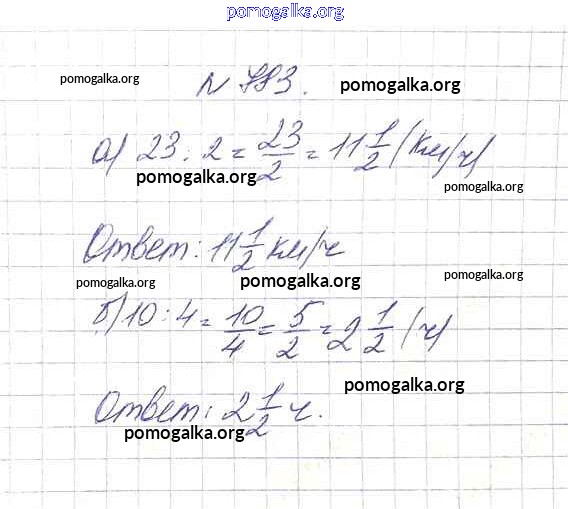 pomogalka.org
pomogalka.org
№ 883. pomogalka.org
а) 23 : 2 = 23/2 = 11 1/2 (км/ч)
pomogalka.org
pomogalka.org
Ответ: 11 1/2 км/ч
pomogalka.org pomogalka.org pomogalka.org
б) 10 : 4 = 10/4 = 5/2 = 2 1/2 (ч)
pomogalka.org
Ответ: 2 1/2 ч.
pomogalka.org